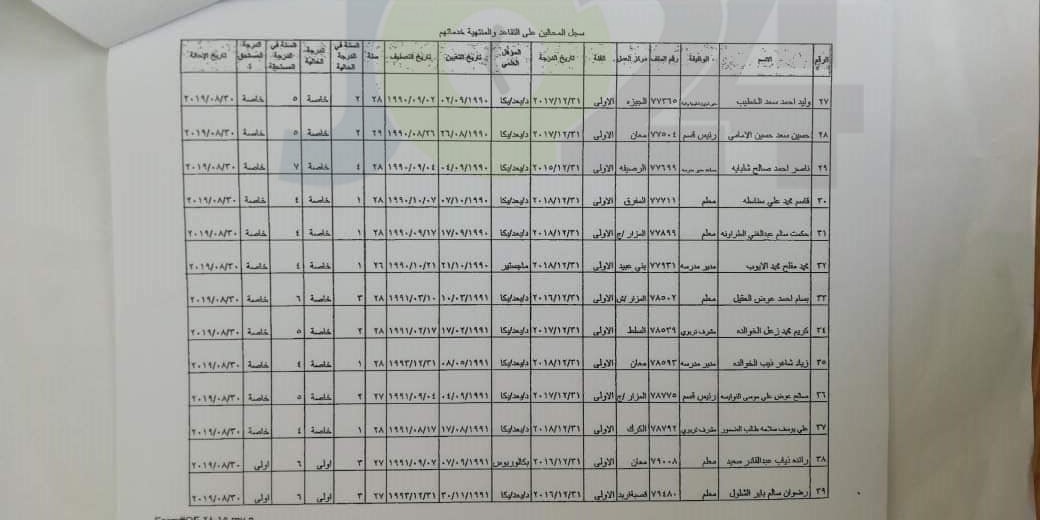 سجل المحالين على التقاعد والمنتهية خدماتهم
الرقم الاسم الوظيفة رقم الملف مركز العمل الفئة تاريخ الدرجة المؤهل العلمي تاريخ التعيين تاريخ التصنيف سنة السنة في الدرجة الحالية الدرجة الحالية السنة في الدرجة المستحقة الدرجة المستحق تاريخ الإحالة
٢٧ وليد احمد سعد الخطيب ٧٧٣٦٥ الجيزه الاولى ٢٠١٧/١٢/٣١ د/بعد/بكا ٠٢/٠٩/١٩٩٠ ١٩٩٠/٠٩/٠٢ ٢٨ ٢ خاصة ٥ خاصة ٢٠١٩/٠٨/٣٠
٢٨ حسين سعد حسين الامامي رئيس قسم ٧٧٥٠٤ معان الاولى ٢٠١٧/١٢/٣١ د/بعد/بكا ٢٦/٠٨/١٩٩٠ ١٩٩٠/٠٨/٢٦ ٢٩ ٢ خاصة ٥ خاصة ٢٠١٩/٠٨/٣٠
٢٩ ناصر احمد صالح شلبايه ٧٧٦٩٩ الرصيفه الاولى ٢٠١٥/١٢/٣١ د/بعد/بكا ٠٤/٠٩/١٩٩٠ ١٩٩٠/٠٩/٠٤ ٢٨ ٤ خاصة ٧ خاصة ٢٠١٩/٠٨/٣٠
٣٠ قاسم محمد علي معلم ٧٧٧١١ المفرق الاولى ٢٠١٨/١٢/٣١ د/بعد/بكا ٠٧/١٠/١٩٩٠ ١٩٩٠/١٠/٠٧ ٢٨ ١ خاصة ٤ خاصة ٢٠١٩/٠٨/٣٠
٣١ حكمت سالم عبدالغني الطراونه معلم ٧٧٨٩٩ المزار /ج الاولى ٢٠١٨/١٢/٣١ د/بعد/بكا ١٧/٠٩/١٩٩٠ ١٩٩٠/٠٩/١٧ ٢٨ ١ خاصة ٤ خاصة ٢٠١٩/٠٨/٣٠
٣٢ محمد مفلح محمد الايوب مدير مدرسه ٧٧٩٣١ بني عبيد الاولى ٢٠١٨/١٢/٣١ ماجستير ٢١/١٠/١٩٩٠ ١٩٩٠/١٠/٢١ ٢٦ ١ خاصة ٤ خاصة ٢٠١٩/٠٨/٣٠
٣٣ بسام احمد عوض العقيل معلم ٧٨٥٠٢ المزار /ش الاولى ٢٠١٦/١٢/٣١ د/بعد/بكا ١٠/٠٣/١٩٩١ ١٩٩١/٠٣/١٠ ٢٨ ٣ خاصة ٦ خاصة ٢٠١٩/٠٨/٣٠
٣٤ كريم محمد زعل الخوالده مشرف تربوي ٧٨٥٣٩ السلط الاولى ٢٠١٧/١٢/٣١ د/بعد/بكا ١٧/٠٢/١٩٩١ ١٩٩١/٠٢/١٧ ٢٨ ٢ خاصة ٥ خاصة ٢٠١٩/٠٨/٣٠
٣٥ زياد شاهر ذيب الخوالده مدير مدرسه ٧٨٥٩٣ معان الاولى ٢٠١٨/١٢/٣١ د/بعد/بكا ٠٨/٠٥/١٩٩١ ١٩٩٣/١٢/٣١ ٢٨ ١ خاصة ٤ خاصة ٢٠١٩/٠٨/٣٠
٣٦ صالح عوض علي موسى النوايسه رئيس قسم ٧٨٧٧٥ المزار /ج الاولى ٢٠١٧/١٢/٣١ د/بعد/بكا ٠٤/٠٩/١٩٩١ ١٩٩١/٠٩/٠٤ ٢٧ ٢ خاصة ٥ خاصة ٢٠١٩/٠٨/٣٠
٣٧ علي يوسف سلامه طالب الضمور مشرف تربوي ٧٨٧٩٢ الكرك الاولى ٢٠١٨/١٢/٣١ د/بعد/بكا ١٧/٠٨/١٩٩١ ١٩٩١/٠٨/١٧ ٢٨ ١ خاصة ٤ خاصة ٢٠١٩/٠٨/٣٠
٣٨ رائده ذياب عبدالقادر سعيد معلم ٧٩٠٠٨ معان الاولى ٢٠١٦/١٢/٣١ بكالوريوس ٠٧/٠٩/١٩٩١ ١٩٩١/٠٩/٠٧ ٢٧ ٣ اولى ٦ اولى ٢٠١٩/٠٨/٣٠
٣٩ رضوان سالم باير الشلول معلم ٧٩٤٨٠ قصبة/اربد الاولى ٢٠١٦/١٢/٣١ د/بعد/بكا ٣٠/١١/١٩٩١ ١٩٩٣/١٢/٣١ ٢٧ ٣ اولى ٦ اولى ٢٠١٩/٠٨/٣٠